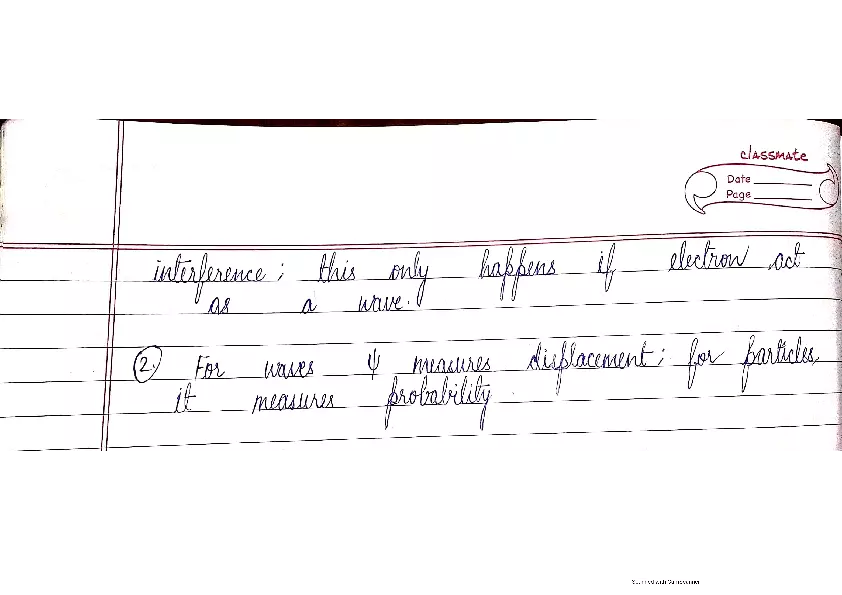 classmate
Date
Page
interference; this only happens if electron act
as a wave.
2. For waves ψ measures displacement; for particles,
it measures probability
Scanned with CamScanner